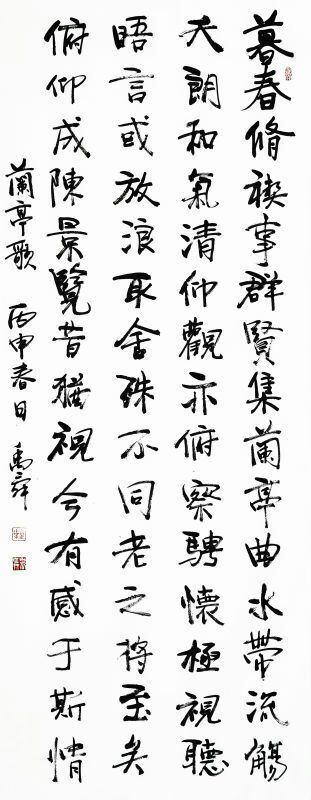 暮春脩禊事群賢集蘭亭曲水帶流觴
天朗和氣清仰觀亦俯察騁懷極視聽
晤言或放浪取舍殊不同老之將至矣
俯仰成陳景覽昔猶視今有感于斯情
蘭亭歌 丙申春日 禹舜